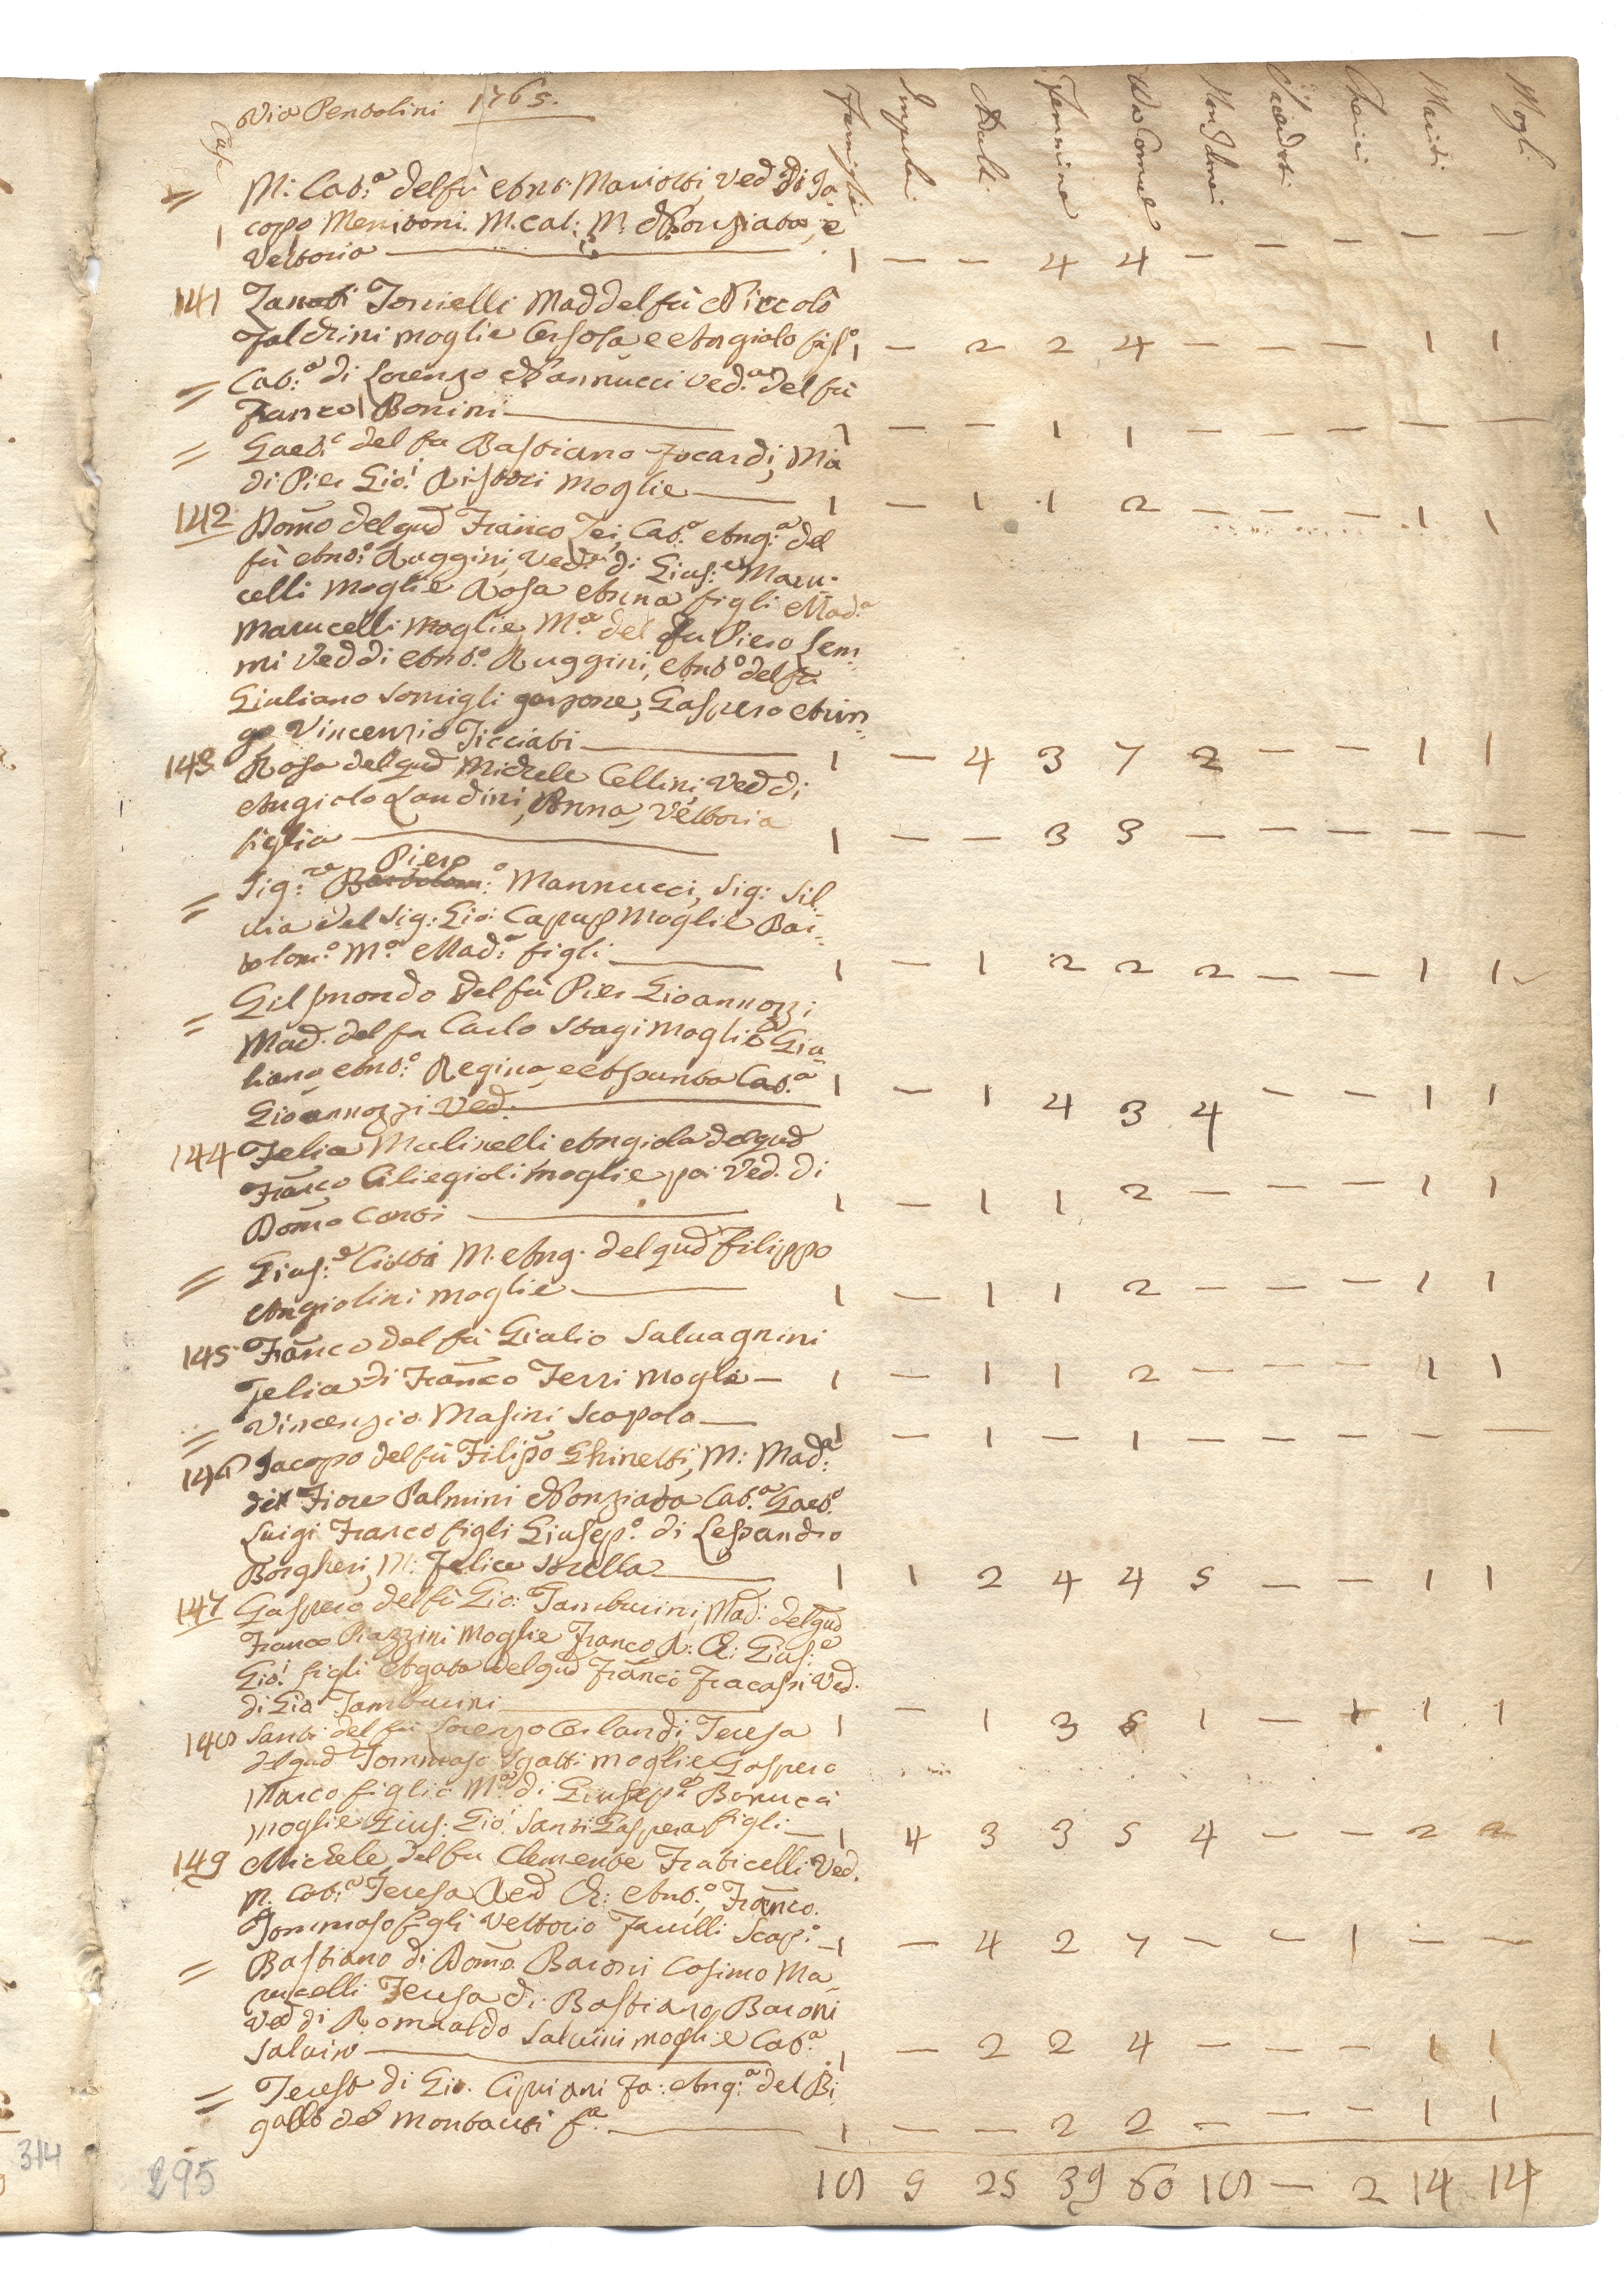 Via Pentolini 1765.
Case
Famiglie Impub: Adulti Femmine Da Comne Non Comni Sacerdoti Cherici Mariti Mogli
= M: Cat:a del fù Anto: Mariotti, Ved di Ja
copo Meniconi. M. Cat: M. Nonziata, e
Vettoria 1 — — 4 4 — — — — —
141 Zanobi Tonielli Mad del fù Niccolò
Faldrini moglie Orsola e Angiolo figl. 1 — 2 2 4 — — — 1 1
= Cat:a di Lorenzo Nannucci Ved:a del fù
Franco Bonini 1 — — 1 1 — — — — —
= Gaet. del fu Bastiano Focardi, Ma
di Pier Gio: Ristori moglie 1 — 1 1 2 — — — 1 1
142 Domo del qud Franco Tei, Cat.a Ang:a del
fù Anto: Ruggini, Ved:a di Gius:e Maru=
celli moglie Rosa Anna figli Mad.a
Marucelli moglie, M.a del fu Piero Lem=
mi Ved di Anto.o Ruggini, Anto del fù
Giuliano Somigli garzone, Gaspero
Vincenzio Ticciati 1 — 4 3 7 2 — — 1 1
143 Rosa del qud Michele Cellini, Ved di
Angiolo Landini, Anna, Vettoria
figlia 1 — — 3 3 — — — — —
Piero
= Sig:re Bartolom:o Mannucci, Sig: Sil=
via del Sig: Gio: moglie Bar=
tolom:o M:a Mad:a figli 1 — 1 2 2 2 — — 1 1
= Gismondo del fù Pier Gioannozzi
Mad. del fu Carlo Stagi moglie Giu=
liano Anto:o Regina, e Assunta Cat.a 1 — 1 4 3 4 — — 1 1
Gioannozzi Ved:
144 Felice Mulinelli Angiola del qud
Franco Ciliegioli moglie poi Ved. di
Domo Conti 1 — 1 1 2 — — — 1 1
= Gius:e Ciotti M. Ang. del qud Filippo
Angiolini moglie 1 — 1 1 2 — — — 1 1
145 Franco del fù Giulio Salvagnini
Felice di Franco Ferri Moglie — 1 — 1 1 2 — — — 1 1
= Vincenzio Masini Scapolo — 1 — 1 — 1 — — — — —
146 Jacopo del fù Filippo Ghinetti, M: Mad:a
del Fiore Palmini Nonziata Cat.a Gaet.o
Luigi Franco figli Giusep.o di Lessandro
Borgheri, M: Felice sorella 1 1 2 4 4 5 — — 1 1
147 Gaspero del fù Gio: Tamburini, Mad: del qud
Franco Piazzini Moglie Franco A: Ch: Gius:e
Gio: figli Agata del qud Franco Fracassi Ved.
di Gio Tamburini 1 — 1 3 5 1 — 1 1 1
148 Santi del fu Lorenzo Orlandi, Teresa
del qud Tommaso Sgatti moglie, Gaspero
Marco figli: M:a di Giusep:e Bonucci
moglie Gius: Gio: Santi Gaspera figli — 1 4 3 3 5 4 — — 2 2
149 Michele del fu Clemente Fraticelli Ved.
M. Cat:a Teresa Ved Ch: Anto.o, Franco.
Tommaso figli Vettorio Fanelli Scap:o — 1 — 4 2 7 — — 1 — —
= Bastiano di Domo Baroni Cosimo Ma
rucelli Teresa di Bastiano Baroni
Ved di Romualdo Salvini moglie Cat.a
Salvini 1 — 2 2 4 — — — 1 1
= Teresa di Gio. Cipriani Fa: Ang:a del Bi
gallo del Montauti f.a 1 — — 2 2 — — — 1 1
18 5 25 39 60 18 — 2 14 14
314
295